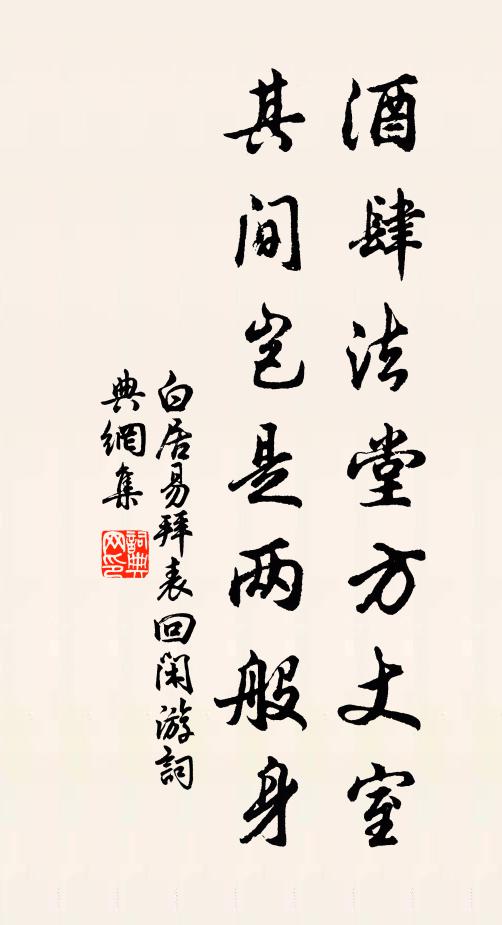 酒肆法堂方丈室
其间岂是两般身
白居易拜表回闲游詞
典網集
詞典
网印